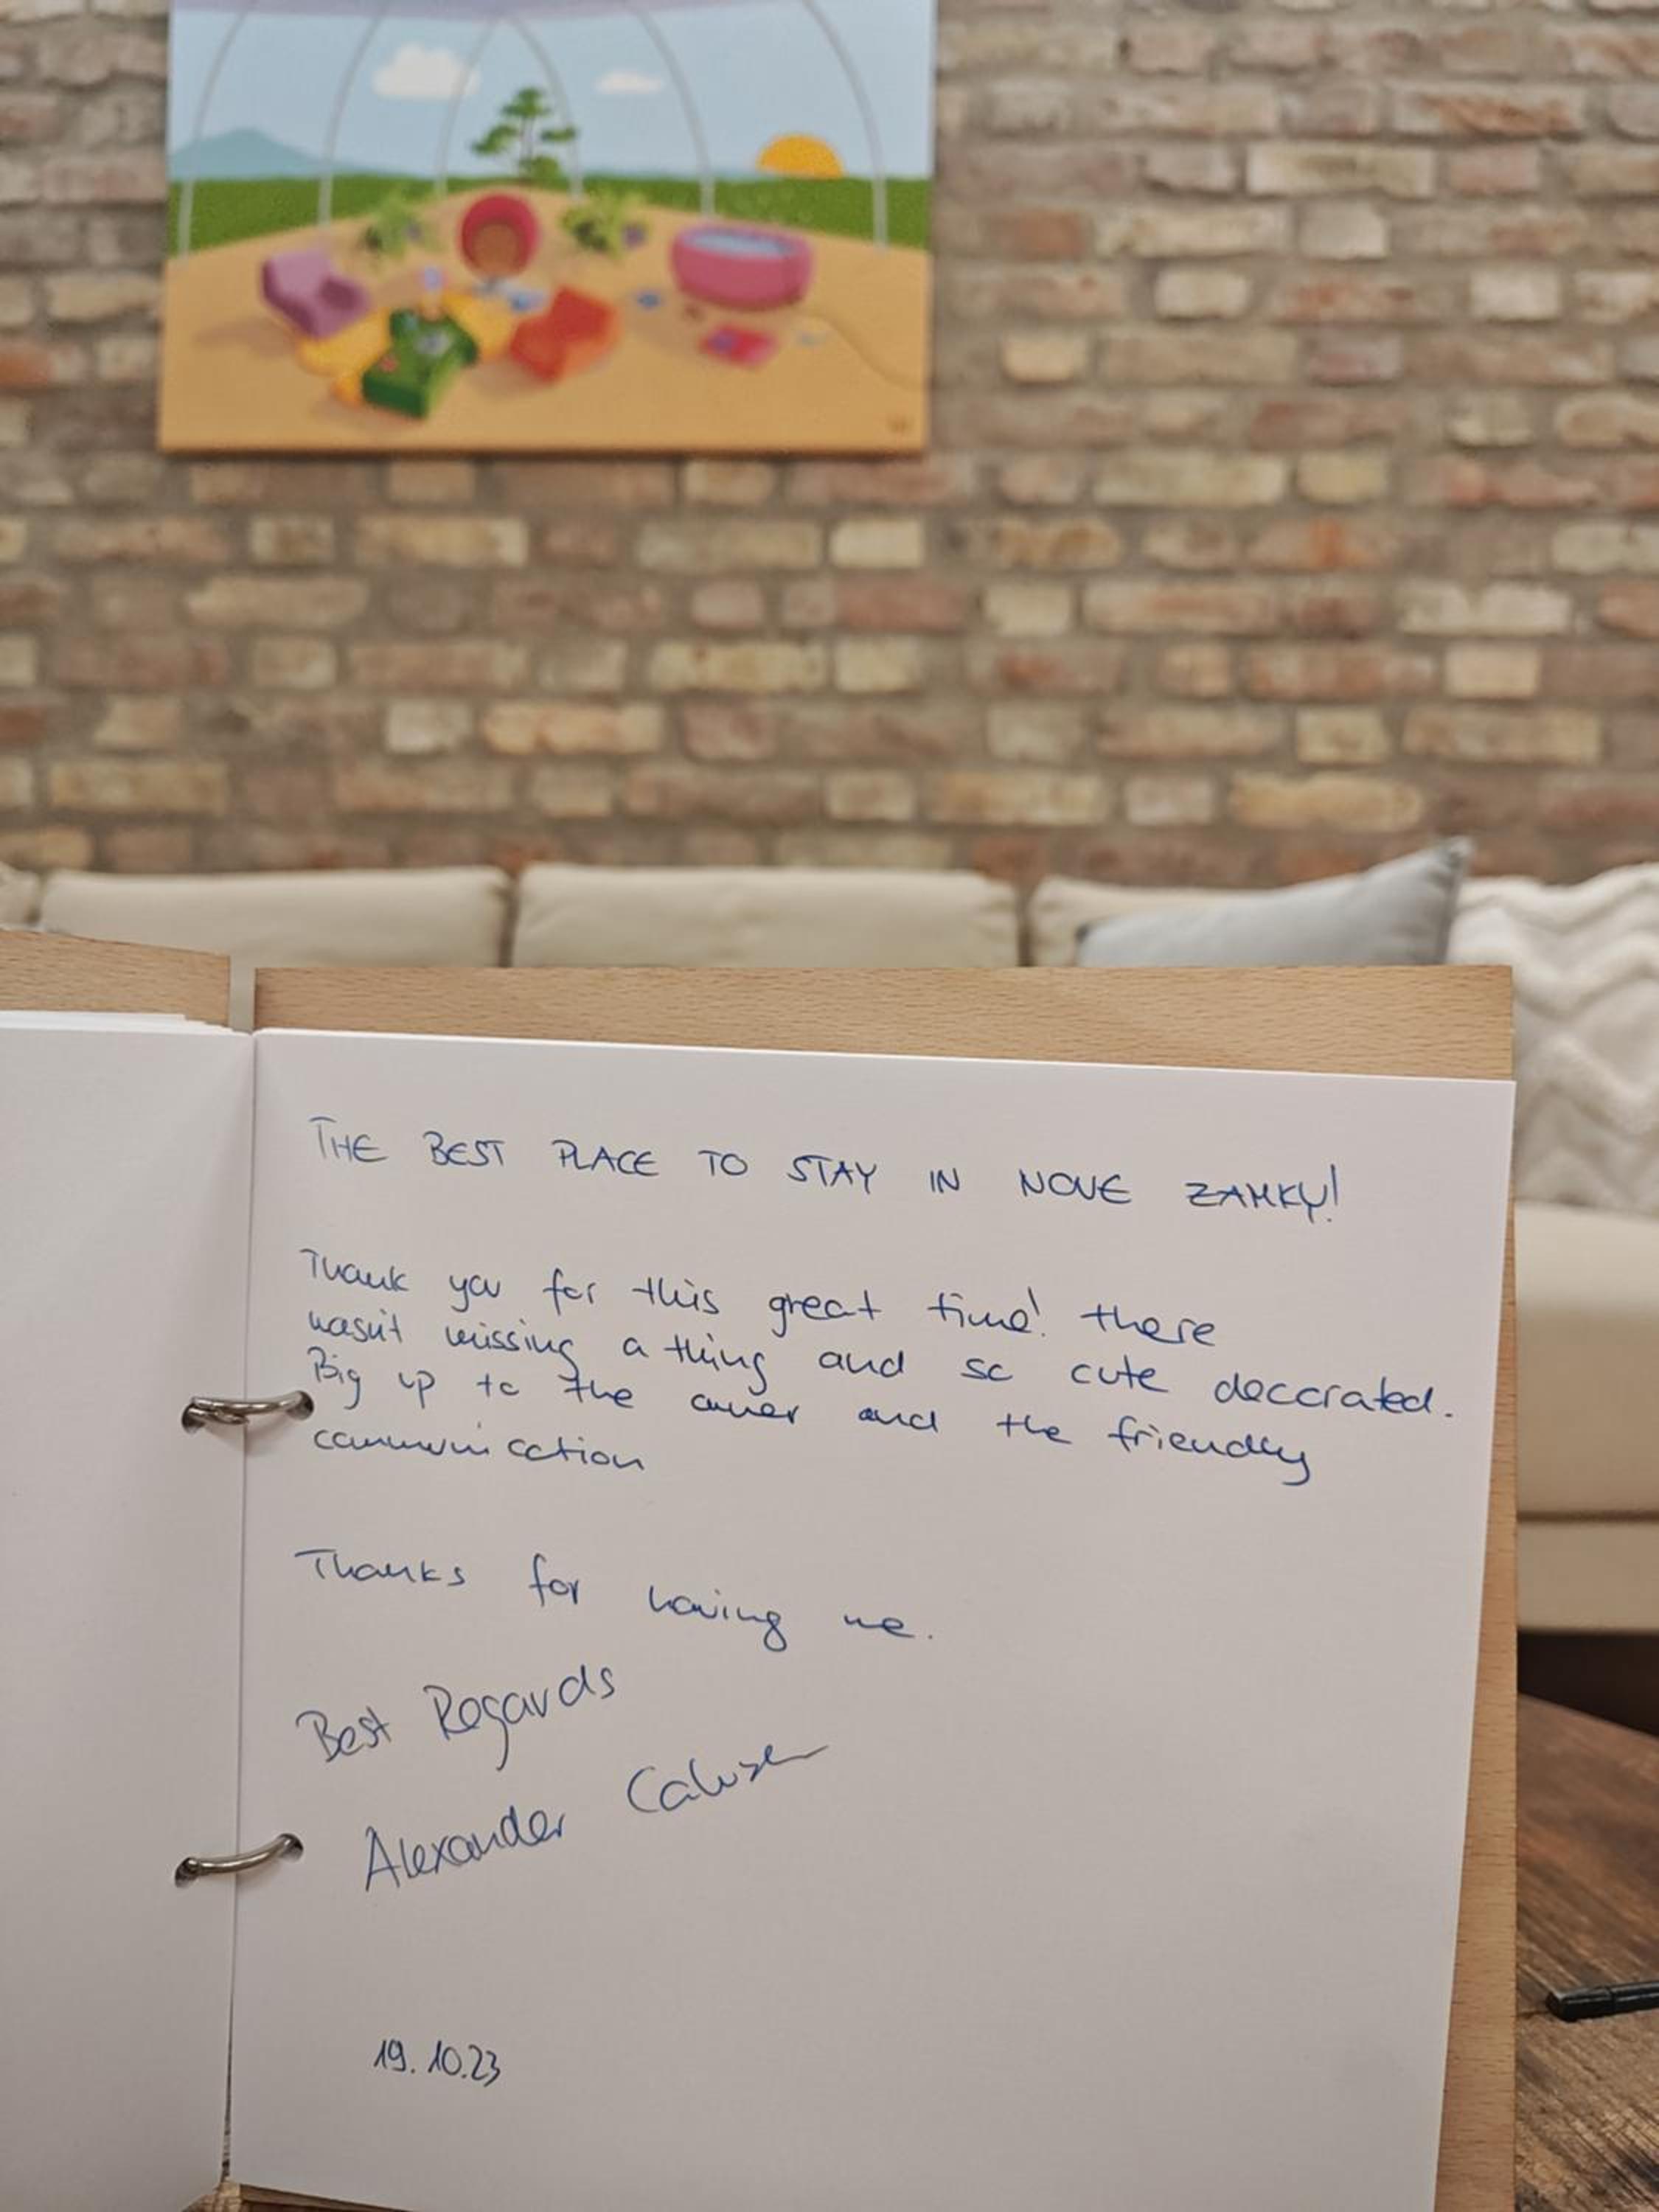 THE BEST PLACE TO STAY IN NOVE ZAMKY!
Thank you for this great time! there
wasn't missing a thing and so cute decorated.
Big up to the owner and the friendly
communication
Thanks for having me.
Best Regards
Alexander
19.10.23